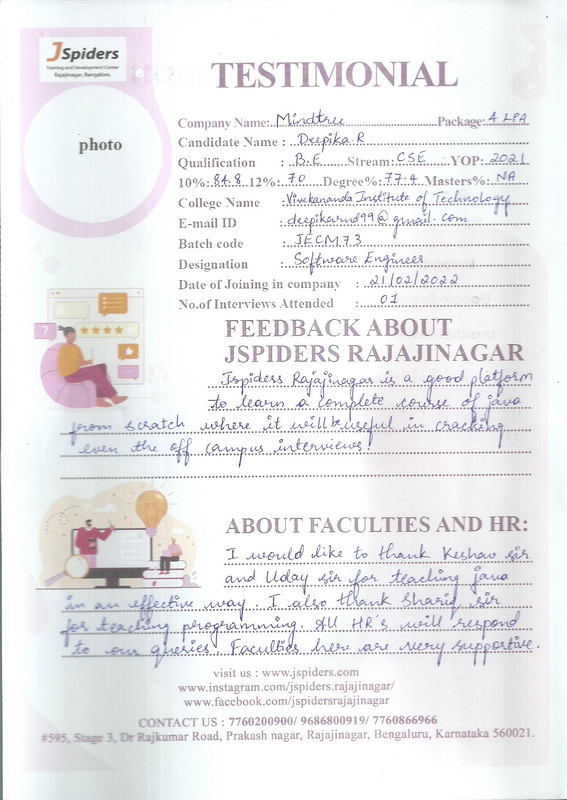 JSpiders
Training and Development Centre
Rajajinagar, Bangalore.
TESTIMONIAL
photo
Company Name: Mindtree Package: 4 LPA
Candidate Name : Deepika R
Qualification : B.E Stream: CSE YOP: 2021
10%: 84.8 12%: 70 Degree%: 77.4 Masters%: NA
College Name : Vivekananda Institute of Technology
E-mail ID : deepikarnd99@gmail.com
Batch code : JECM73
Designation : Software Engineer
Date of Joining in company : 21/02/2022
No.of Interviews Attended : 01
FEEDBACK ABOUT
JSPIDERS RAJAJINAGAR
Jspiders Rajajinagar is a good platform
to learn a complete course of java
from scratch where it will be useful in cracking
even the off campus interviews!
ABOUT FACULTIES AND HR:
I would like to thank Keshav sir
and Uday sir for teaching java
in an effective way. I also thank Shariq sir
for teaching programming. All HR's will respond
to our queries. Faculties here are very supportive.
visit us : www.jspiders.com
www.instagram.com/jspiders.rajajinagar/
www.facebook.com/jspidersrajajinagar
CONTACT US : 7760200900/ 9686800919/ 7760866966
#595, Stage 3, Dr Rajkumar Road, Prakash nagar, Rajajinagar, Bengaluru, Karnataka 560021.